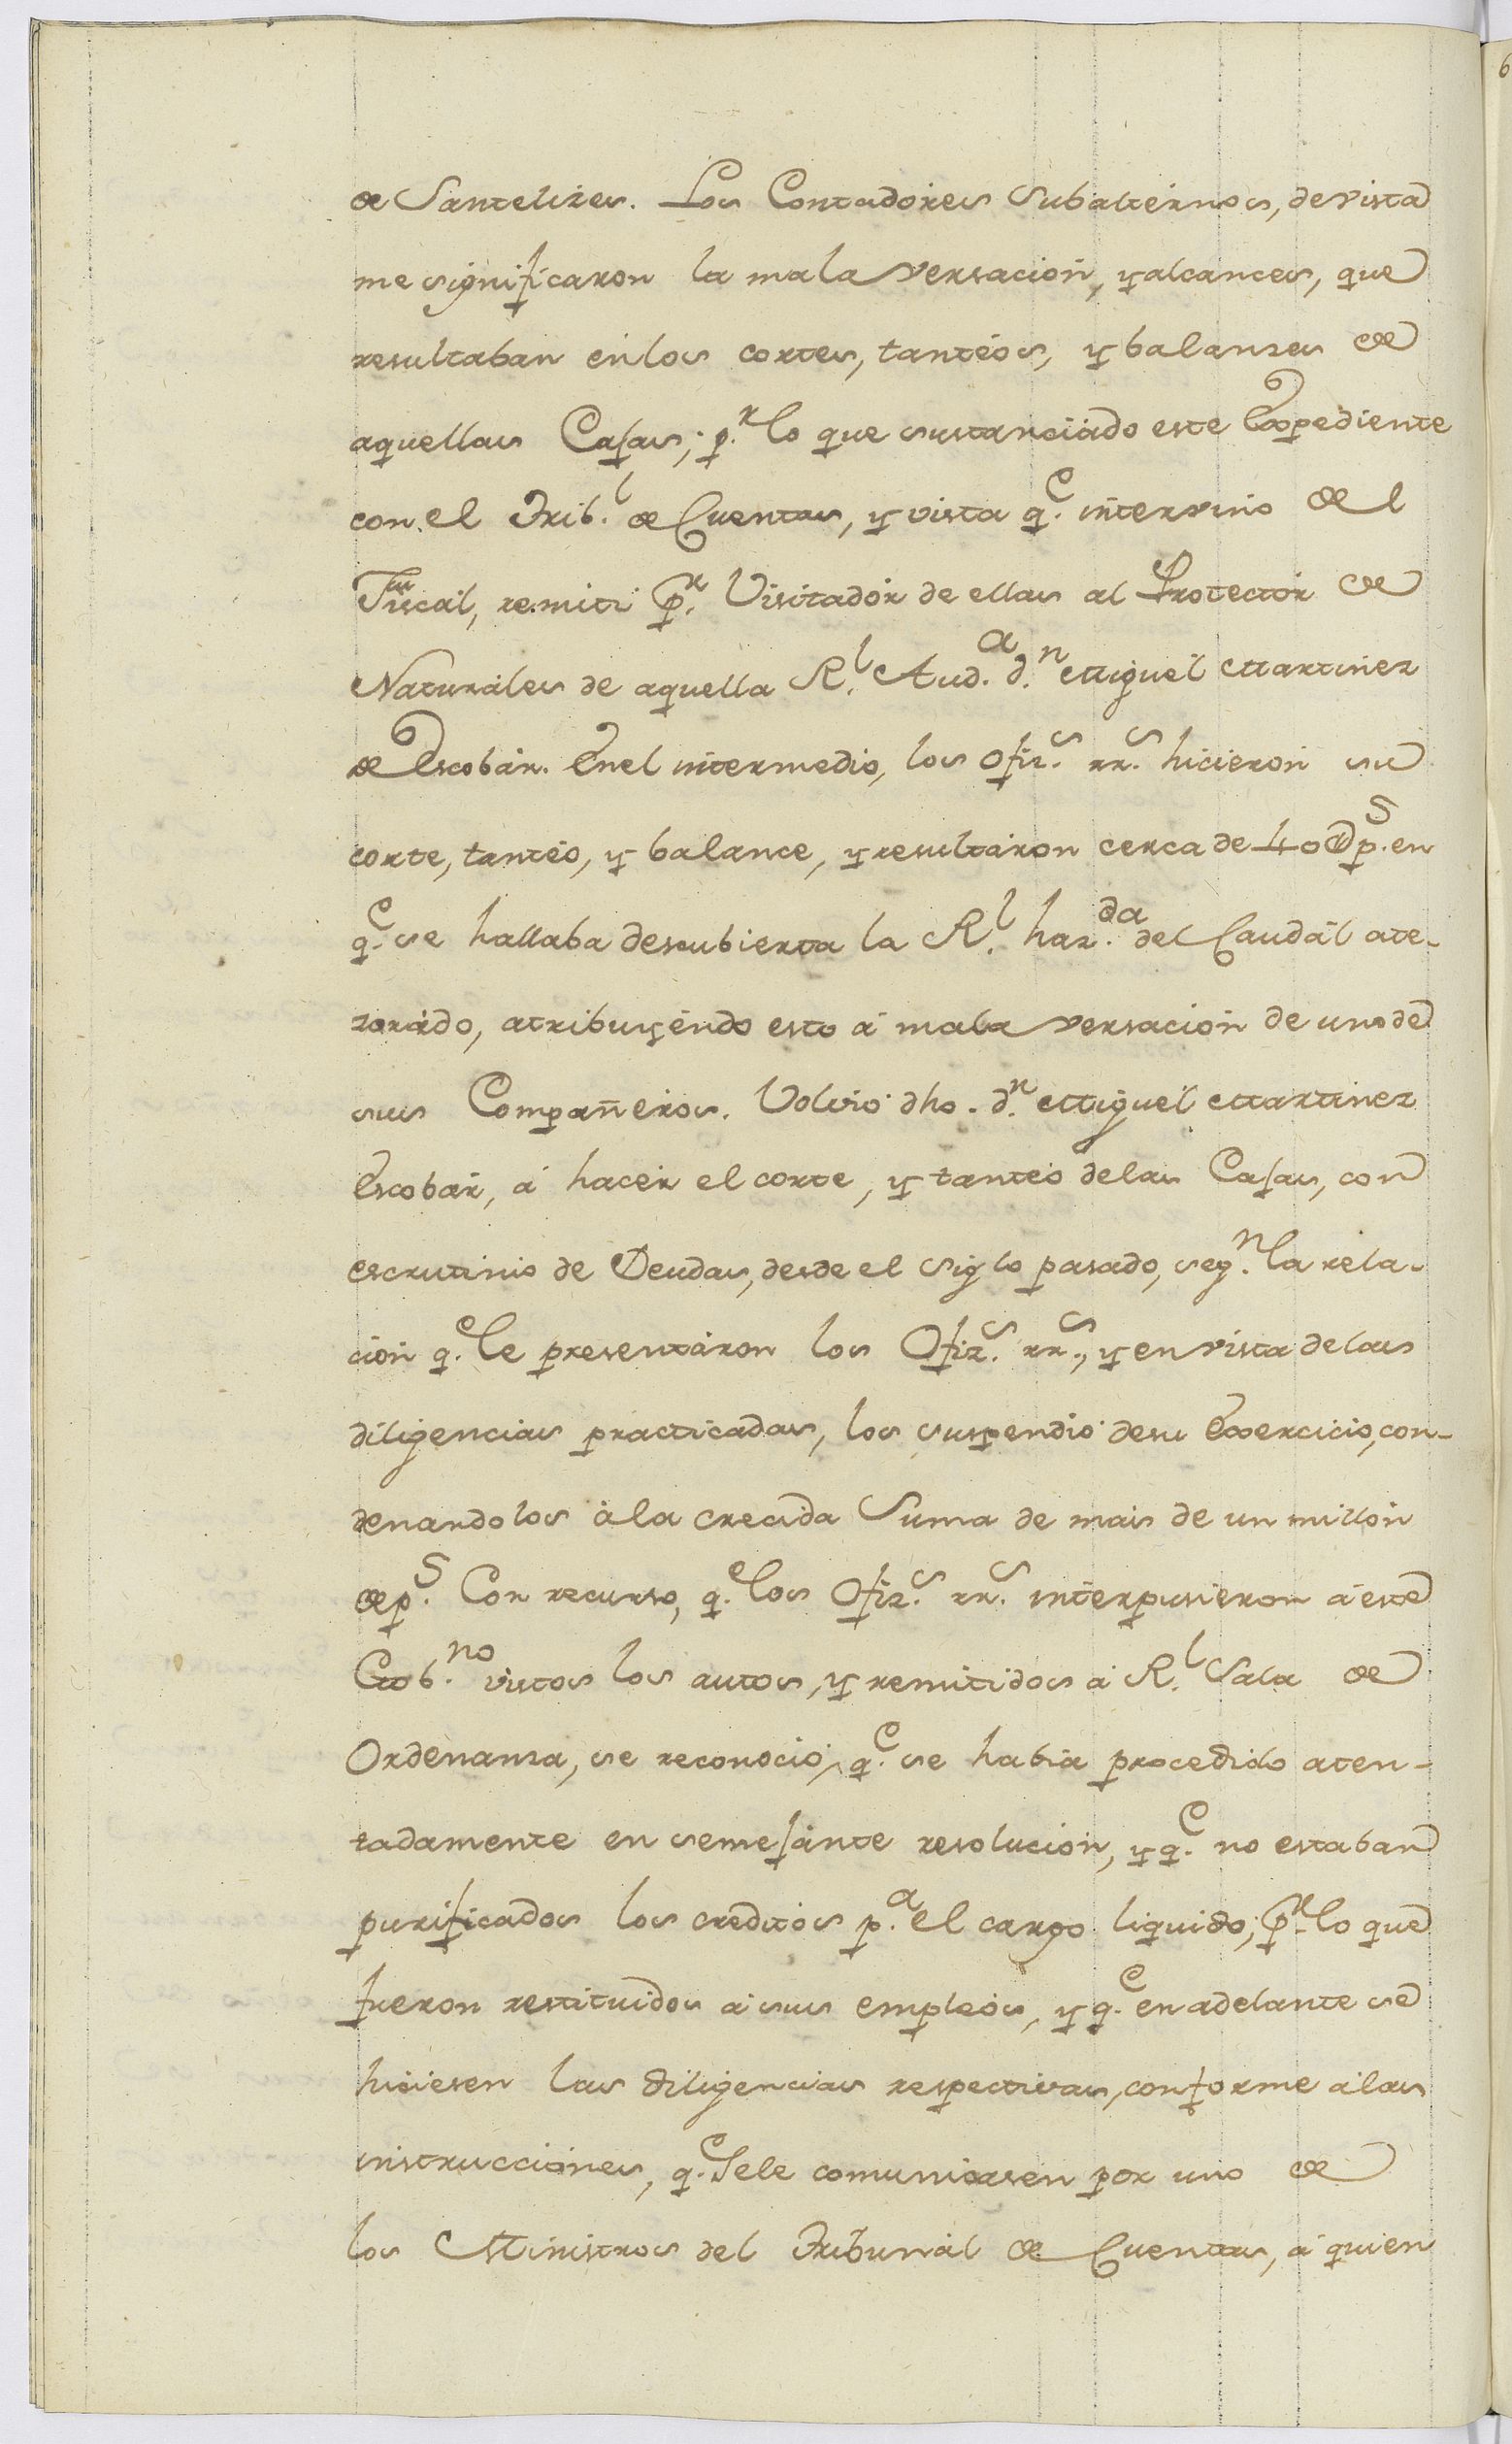 de Santelizes. Los Contadores Subalternos, de vista
me significaron la mala versacion, y alcances, que
resultaban en los cortes, tantéos, y balanzes de
aquellas Caxas; p.r lo que sustanciado este Expediente
con el Trib.l de Cuentas, y vista q.e intervino del
Fiscal, remiti p.r Visitador de ellas al Protector de
Naturales de aquella R.l Aud.a d.n Miguel Martinez
de Escobar. En el intermedio, los Ofiz.s rr.s hicieron su
corte, tantéo, y balance, y resultaron cerca de 40@ p.s en
q.e se hallaba descubierta la R.l haz.da del Caudál ate-
zorado, atribuyendo esto á mala versacion de uno de
sus Compañeros. Volvio dho. d.n Miguel Martinez
Escobar, á hacer el corte, y tanteo de las Caxas, con
escrutinio de Deudas, desde el Siglo pasado, seg.n la rela-
cion q.e le presentaron los Ofiz.s rr.s, y en vista de las
diligencias practicadas, los suspendió de su Exercicio, con-
denandolos á la crecida Suma de mas de un millon
de p.s Con recurso, q.e los Ofiz.s rr.s interpusieron á este
Gob.no vistos los autos, y remitidos á R.l Sala de
Ordenanza, se reconoció, q.e se habia procedido aten-
tadamente en semejante resolucion, y q.e no estaban
purificados los creditos p.a el cargo liquido; p.r lo que
fueron restituidos á sus empleos, y q.e en adelante se
hiciesen las diligencias respectivas, conforme á las
instrucciones, q.e se le comunicasen por uno de
los Ministros del Tribunál de Cuentas, á quien
6